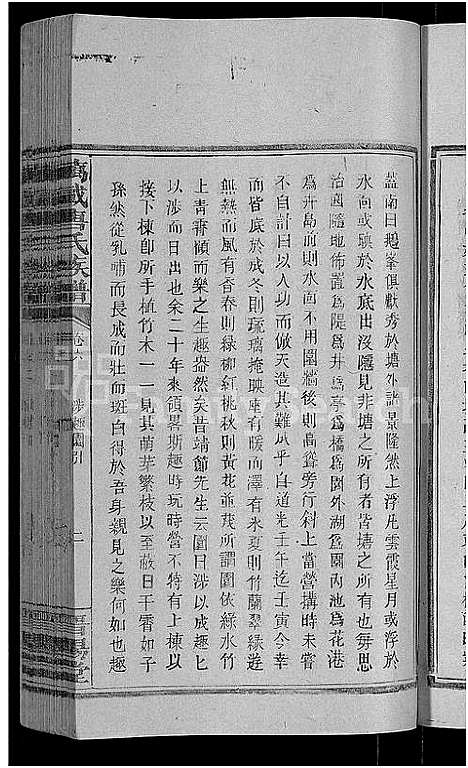 蓋南曰鵝峯俱獻秀於塘外諸景隆然上浮凡雲霞星月或浮於
水面或暎於水底出沒隱見非塘之所有者皆塘之所有也每思
治園隨地佈置爲隄爲井爲亭爲橋爲園外湖爲園內池爲花港
爲井島而則水面不用圍墻後則高聳旁行斜上當營構時未嘗
不自計曰以人功而倣天造其難成乎自道光壬午迄壬寅今幸
而皆底於成冬則琉璃掩映座有暖而澤有氷夏則竹蘭翠綠遊
無熱而風有香春則綠柳紅桃秋則黃花並茂所謂園依綠水竹
上青霄傾而樂之生趣盎然矣昔靖節先生云園日涉以成趣匕
以涉而日出也余二十年來領畧斯趣時玩時營不特有上棟以
接下棟卽所手植竹木一一見其萌芽繁枝以至蔽日干霄如子
孫然從乳哺而長成而壯而斑白得於吾身親見之樂何如也趣
萬載
氏族譜
卷六
涉趣園引
二